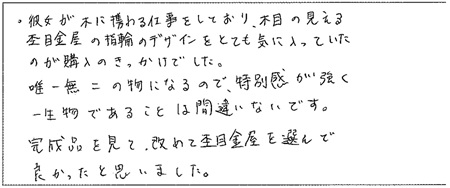 ・彼女が木に携わる仕事をしており、木目の見える
杢目金屋の指輪のデザインをとても気に入っていた
のが購入のきっかけでした。
唯一無二の物になるので、特別感が強く
一生物であることは間違いないです。
完成品を見て、改めて杢目金屋を選んで
良かったと思いました。